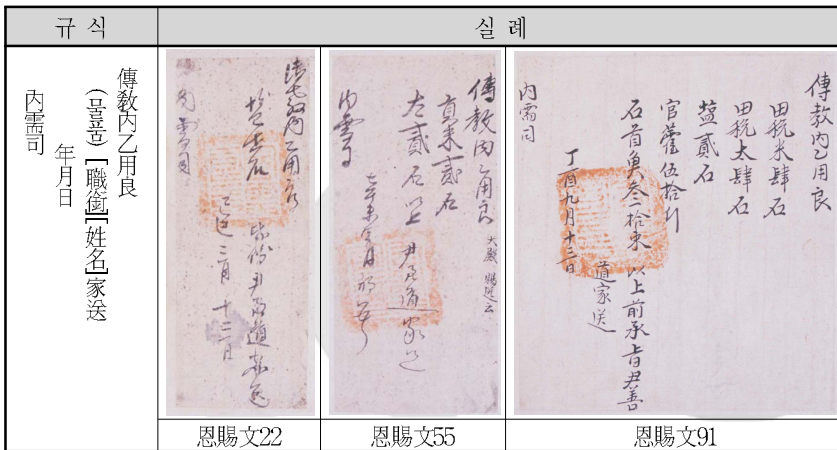 규 식
실 례
傳敎內乙用良
(물품) [職銜]姓名家送
年月日
內需司
傳敎內乙用良
塩壹石 尹善道家送
己巳三月十三日
內需司
傳敎內乙用良
眞末貳石
太貳石以上 尹善道家送
辛未 月初
內需司
傳敎內乙用良
田稅米肆石
田稅太肆石
塩貳石
官藿伍拾斤
石首魚叄拾束 以上前承旨尹善
道家送
丁酉九月十三日
內需司
恩賜文22
恩賜文55
恩賜文91